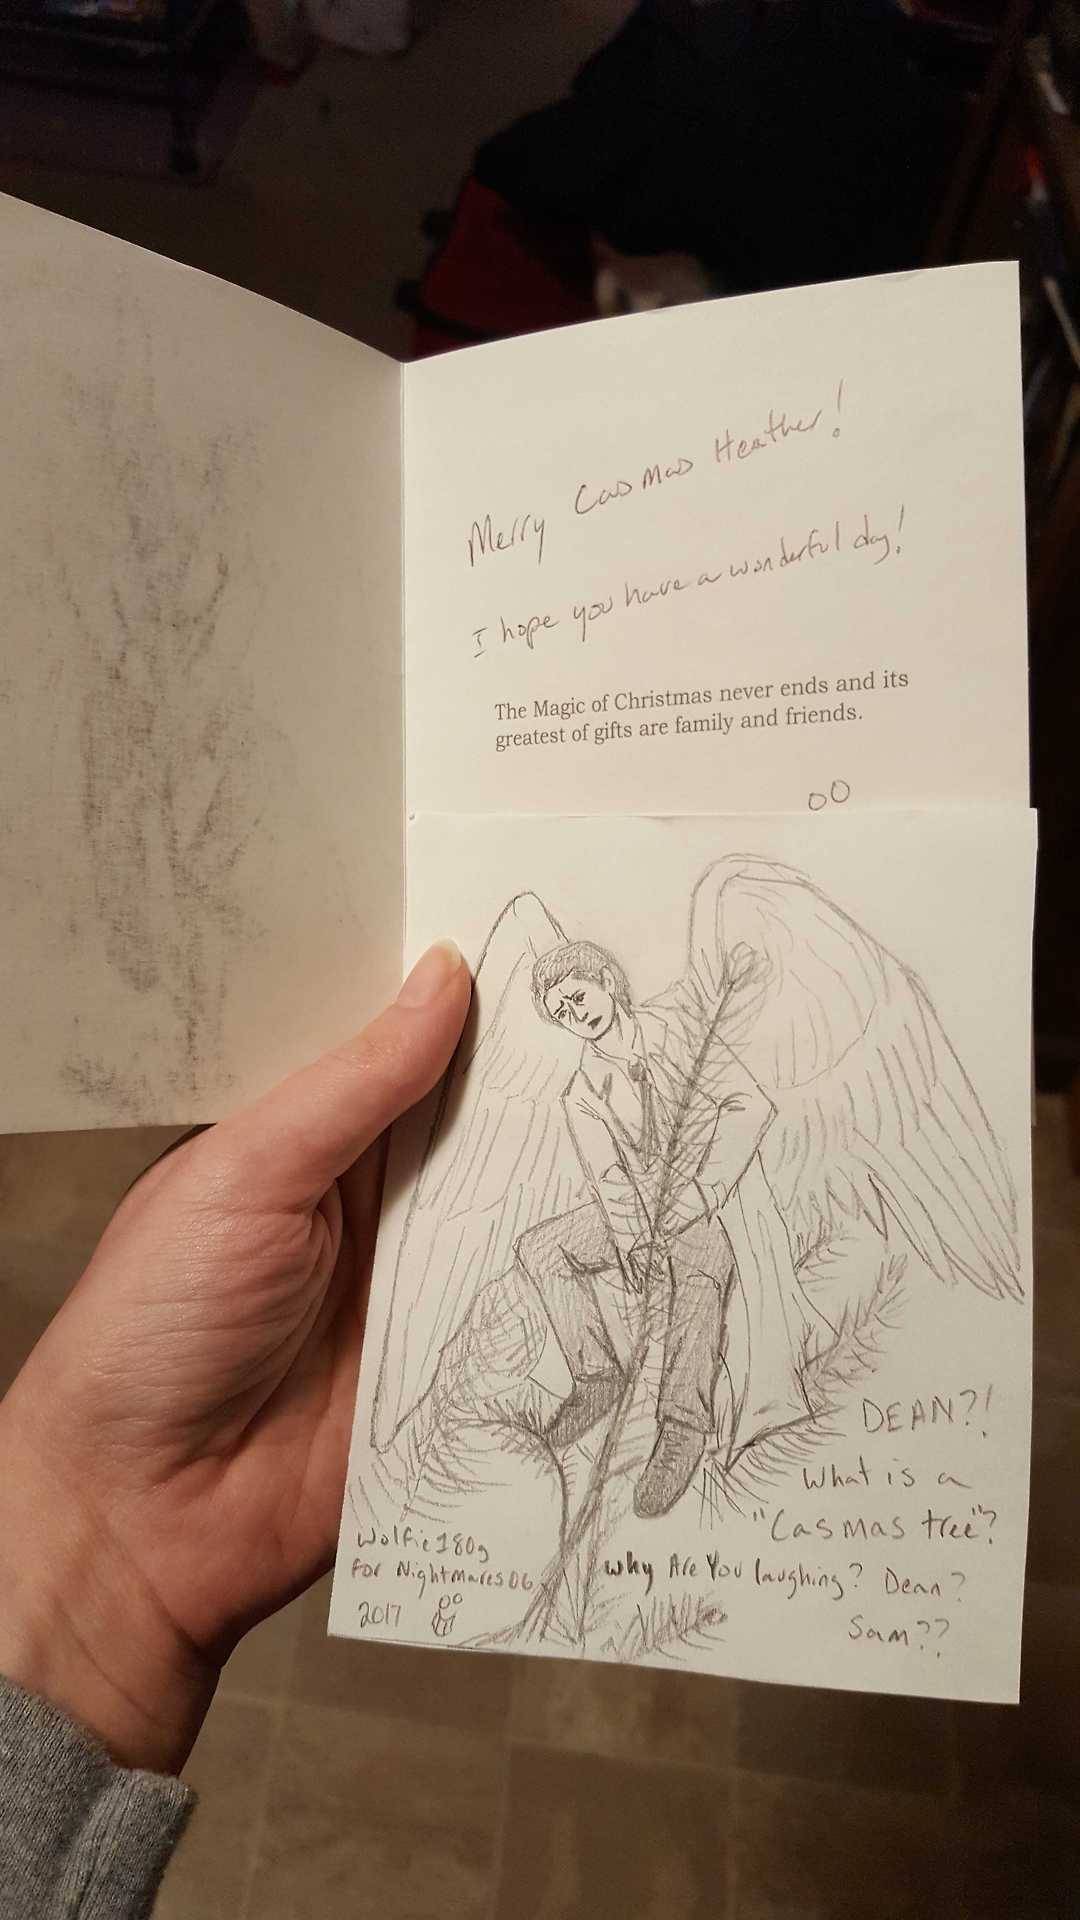 Merry Casmas Heather!
I hope you have a wonderful day!
The Magic of Christmas never ends and its
greatest of gifts are family and friends.
DEAN?!
What is a
"Casmas tree"?
why Are You laughing? Dean?
Sam??
Wolfie180g
for Nightmares06
2017